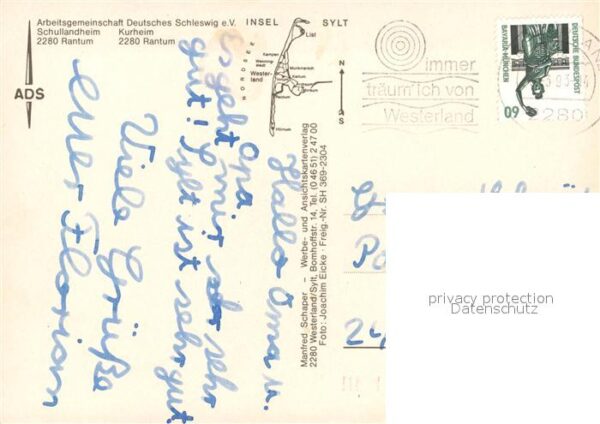 Arbeitsgemeinschaft Deutsches Schleswig e.V.
Schullandheim Kurheim
2280 Rantum 2280 Rantum
ADS
INSEL SYLT
NORDSEE
List
Kampen
Wenning-
stedt
Wester-
land
Munkmarsch
Keitum
Rantum
Hörnum
N
S
immer
träum' ich von
Westerland
2280
DEUTSCHE BUNDESPOST
BAVARIA MÜNCHEN
60
Manfred Schaper – Werbe- und Ansichtskartenverlag
2280 Westerland/Sylt, Bomhoffstr. 14, Tel. (0 46 51) 2 47 00
Foto: Joachim Eicke · Freig.-Nr. SH 369-2304
Hallo Oma u.
Opa
Es geht mir sehr
gut! Sylt ist sehr gut
Viele Grüße
euer Florian
24
privacy protection
Datenschutz